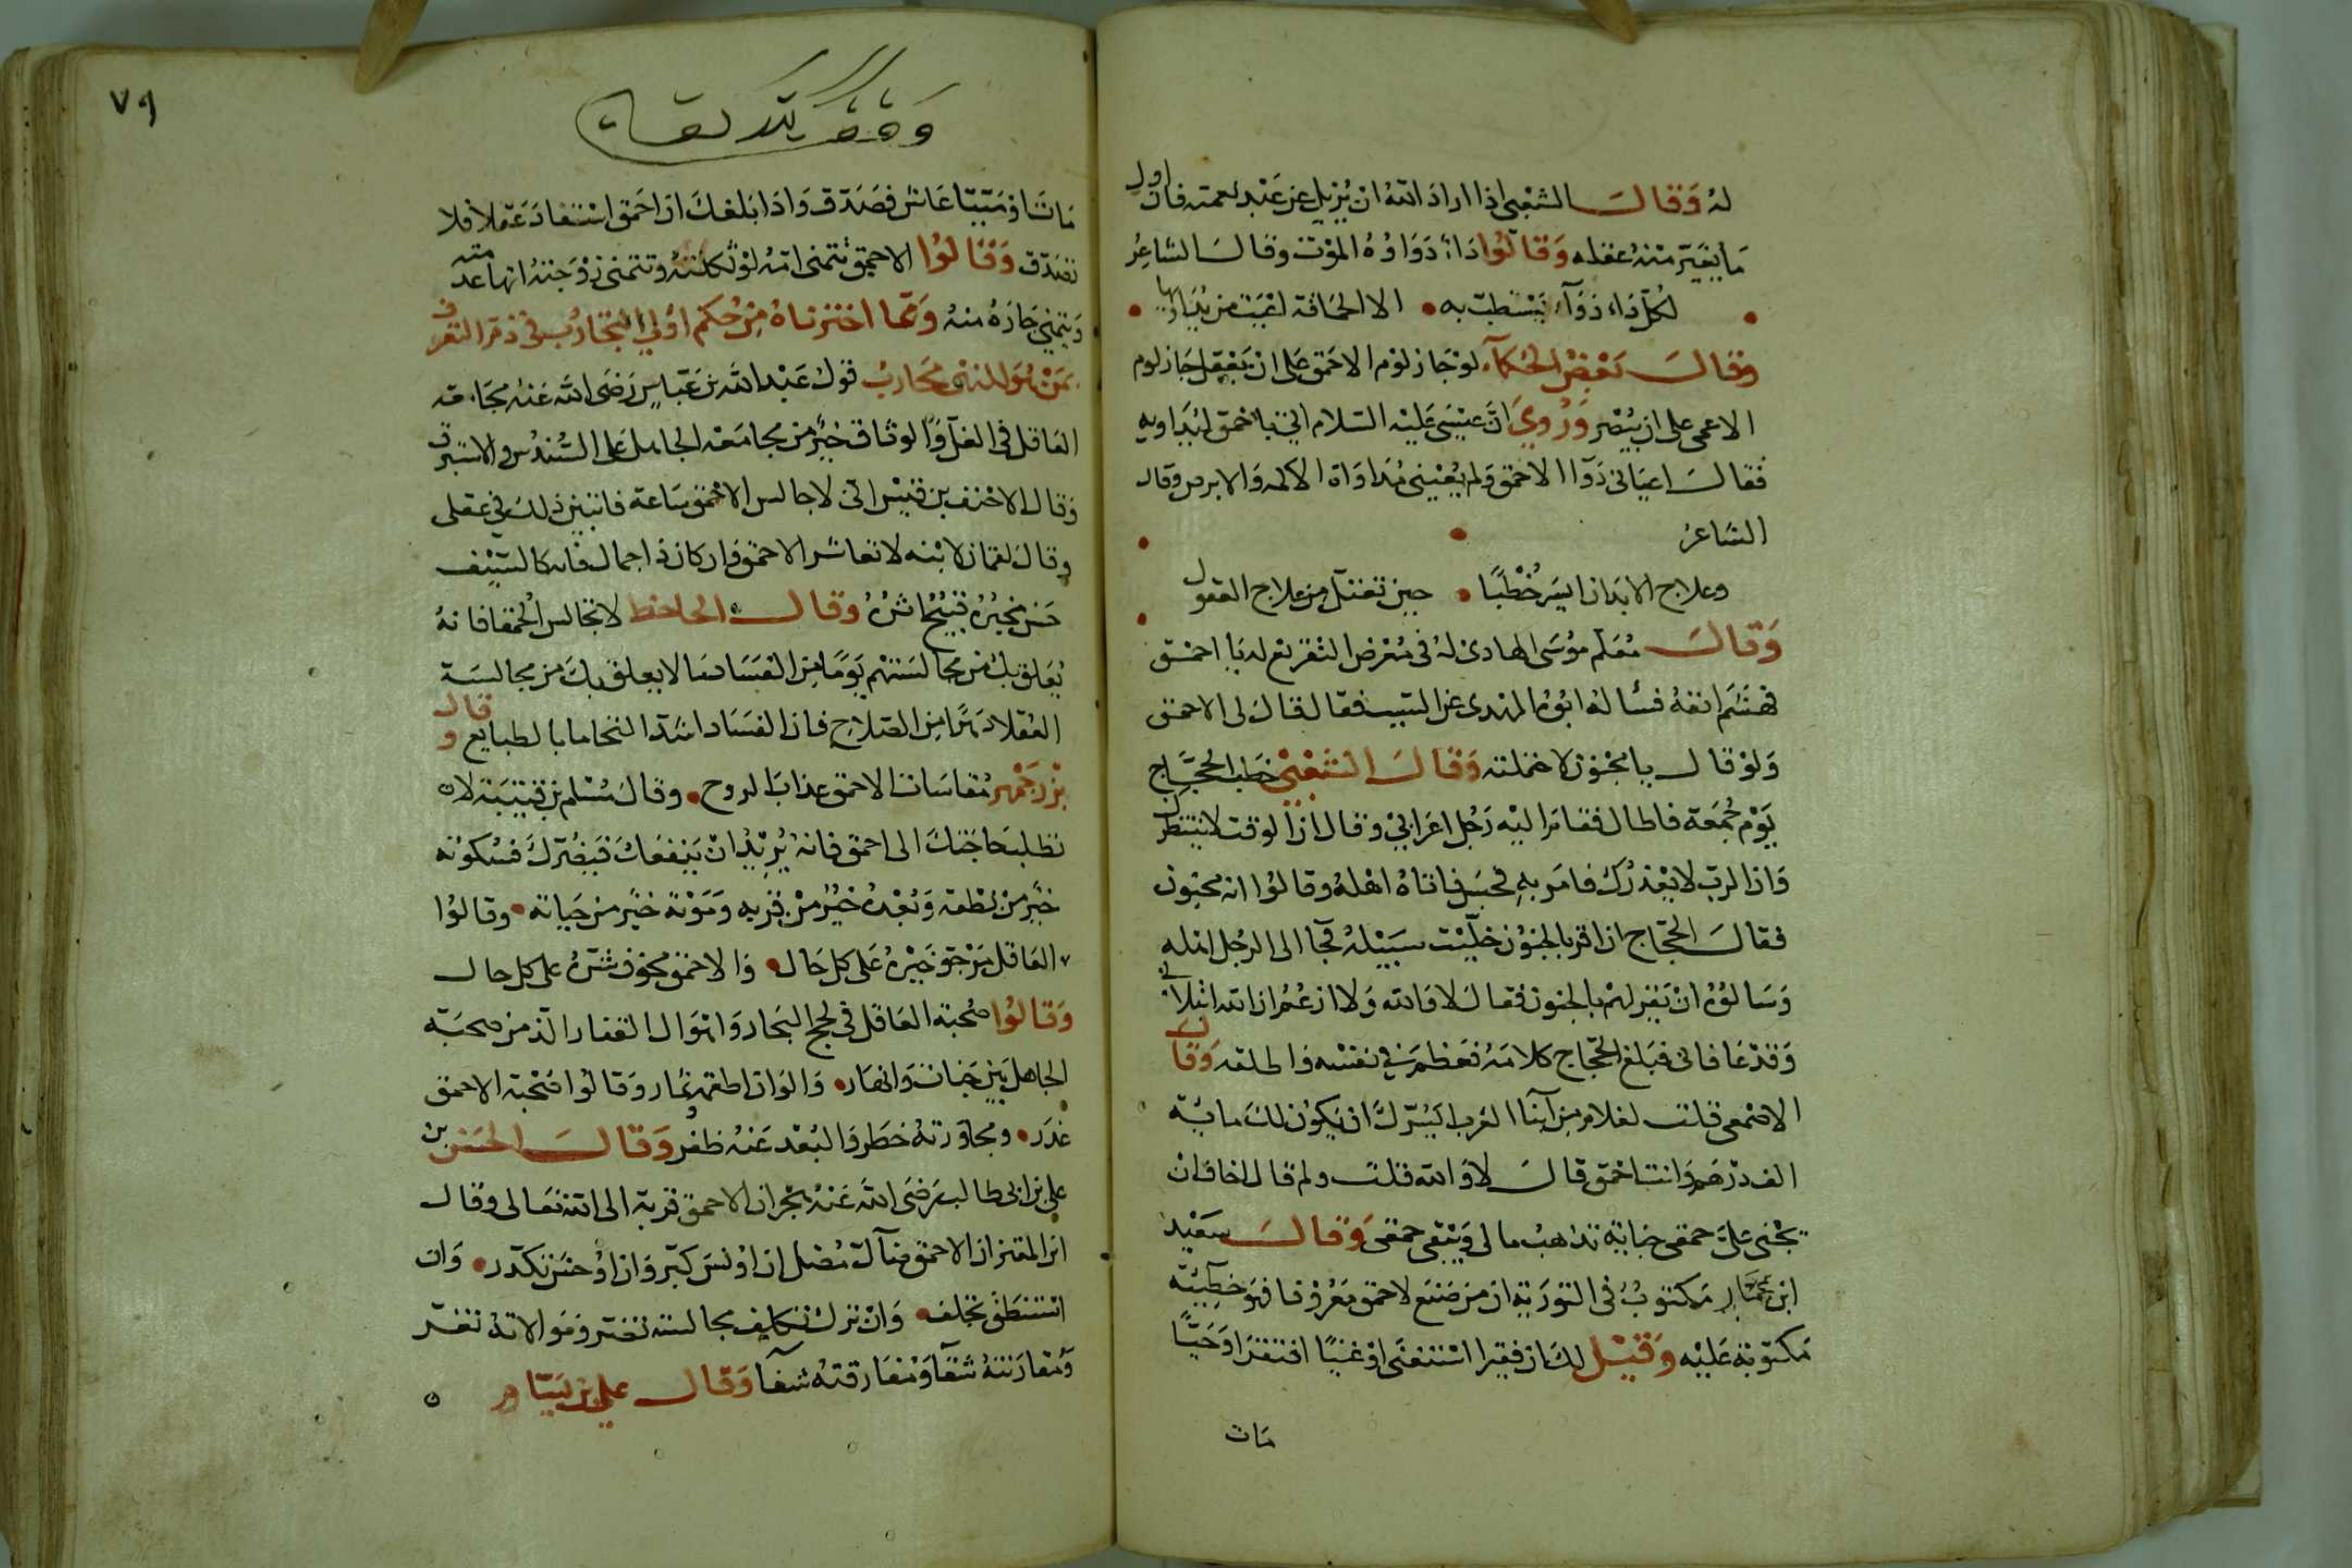 له وقال الشعبي اذا اراد الله ان يزيل عن عبد نعمته فاول
ما يغير منه عقله وقالوا داء دواوه الموت وقال الشاعر
لكل داء دواء يستطب به الا الحماقة اعيت من يداويها
وقال بعض الحكماء لو جاز لوم الاحمق على ان يعقل لجاز لوم
الاعمى على ان يبصر وروي ان عيسى عليه السلام اتي باحمق ليداويه
فقال اعياني دوا الاحمق ولم يعيني مداواة الاكمه والابرص وقال
الشاعر
وعلاج الابدان ايسر خطبا حين تعتل من علاج العقول
وقال معلم موسى الهادي له في معرض التقريع له يا احمق
فهشم انفه فساله ابوه المهدى عن السبب فقال قال لى الاحمق
ولو قال يا مجنون لاحتملته وقال الشعبي خطب الحجاج
يوم جمعة فاطال فقام اليه رجل اعرابي وقال ان الوقت لا ينتظرك
وان الرب لا يعذرك فامر به فحبس فاتاه اهله وقالوا انه مجنون
فقال الحجاج ان اقر بالجنون خليت سبيله فجا الى الرجل اهله
وسالوه ان يقر لهم بالجنون فقال لا والله ولا ازعم ان الله ابتلاني
وقد عافاني فبلغ الحجاج كلامه فعظم في نفسه واطلقه وقال
الاصمعي قلت لغلام من ابنا العرب ايسرك ان يكون لك ماية
الف درهم وانت احمق قال لا والله قلت ولم قال اخاف ان
يجني علي حمقي جناية تذهب مالى ويبقى حمقي وقال سعيد
ابن مكتوب في التورية ان من صنع لاحمق معروفا فهو خطيئة
مكتوبة عليه وقيل لك ان فقيرا استغنى او غنيا افتقر او حيا
مات
٧٩
وقف
مات او ميتا عاش فصدق واذا بلغك ان احمق استفاد عقلا فلا
تصدق وقالوا الاحمق تتمنى امه لو ثكلته وتتمنى زوجته انها عدمته
ويتمنى جاره منه ومما اخترناه من حكم اولي التجارب في ذم التعرف
بمن هو للنهى محارب قول عبد الله بن عباس رضى الله عنه مجامعة
العاقل في الغل والوثاق خير من مجامعة الجاهل على السندس والاستبرق
وقال الاحنف بن قيس اني لاجالس الاحمق ساعة فاتبين ذلك في عقلى
وقال لقمان لابنه لا تعاشر الاحمق وان كان ذا جمال فانه كالسيف
حسن مخبره قبيح اثره وقال الجاحظ لا تجالس الحمقا فانه
يعلق بك من مجالستهم يوما من الفساد ما لا يعلق بك من مجالسة
العقلا دهرا من الصلاح فان الفساد اشد التحاما بالطبايع وقال
بزرجمهر مقاسات الاحمق عذاب الروح وقال مسلم بن قتيبة لا
تطلب حاجتك الى احمق فانه يريد ان ينفعك فيضرك فسكوته
خير من نطقه وبعده خير من قربه وموته خير من حياته وقالوا
العاقل يرجو خيره على كل حال والاحمق مخوف شره على كل حال
وقالوا صحبة العاقل في لجج البحار واهوال القفار الذ من صحبة
الجاهل بين جنات وانهار والوان اطعمة وثمار وقالوا صحبة الاحمق
غدر ومجاورته خطر والبعد عنه ظفر وقال الحسن بن
علي بن ابي طالب رضى الله عنه هجران الاحمق قربة الى الله تعالى وقال
ابن المقنع ان الاحمق ضال مضل ان اونس كبر وان اوحش تكدر وان
استنطق تخلف وان ترك تكلف مجالسته تغتر وموالاته تضر
ومقارنته شقا ومفارقته شفا وقال علي بن بسام